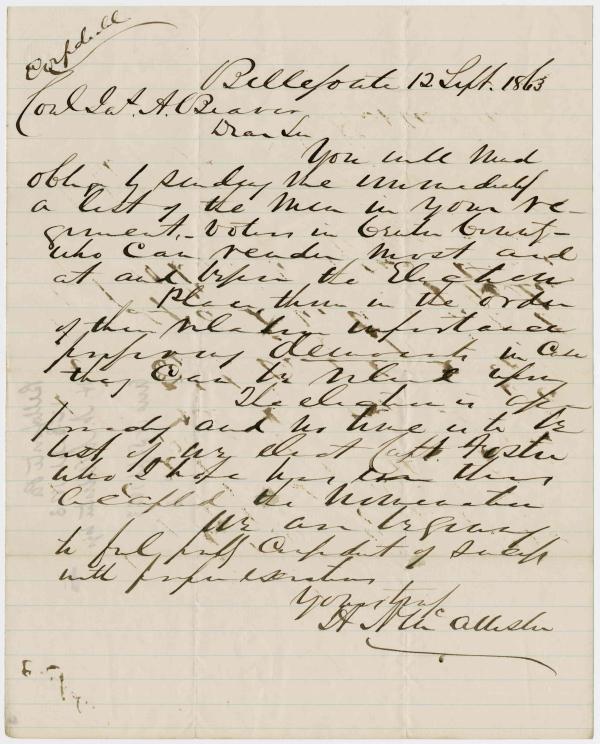 Confidential
Bellefonte 12 Sept. 1863
Conl Jas. A. Beaver
Dear Sir
You will much
oblige by sending me immediately
a list of the men in your re-
giment, - voters in Centre County -
who can render most aid
at and before the Election
Place them in the order
of their relative importance
preferring democrats in case
they can be relied upon
The election is
and no time is to be
lost if we elect Capt. Foster
who I hope has ere this
accepted the nomination
We are beginning
to feel confident of success
with proper exertions
Yours truly
H N McAllister